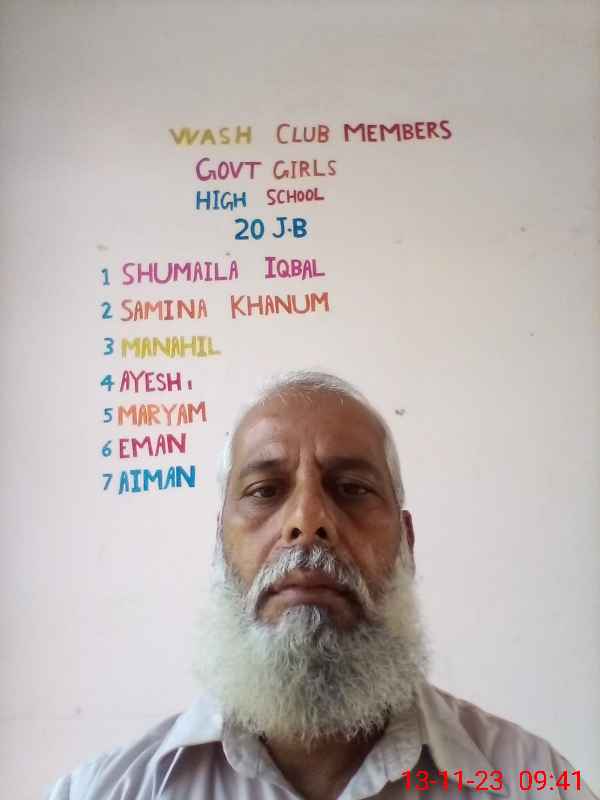 WASH CLUB MEMBERS
GOVT GIRLS
HIGH SCHOOL
20 J-B
1 SHUMAILA IQBAL
2 SAMINA KHANUM
3 MANAHIL
4
5 MARYAM
6 EMAN
7 AIMAN
13-11-23 09:41